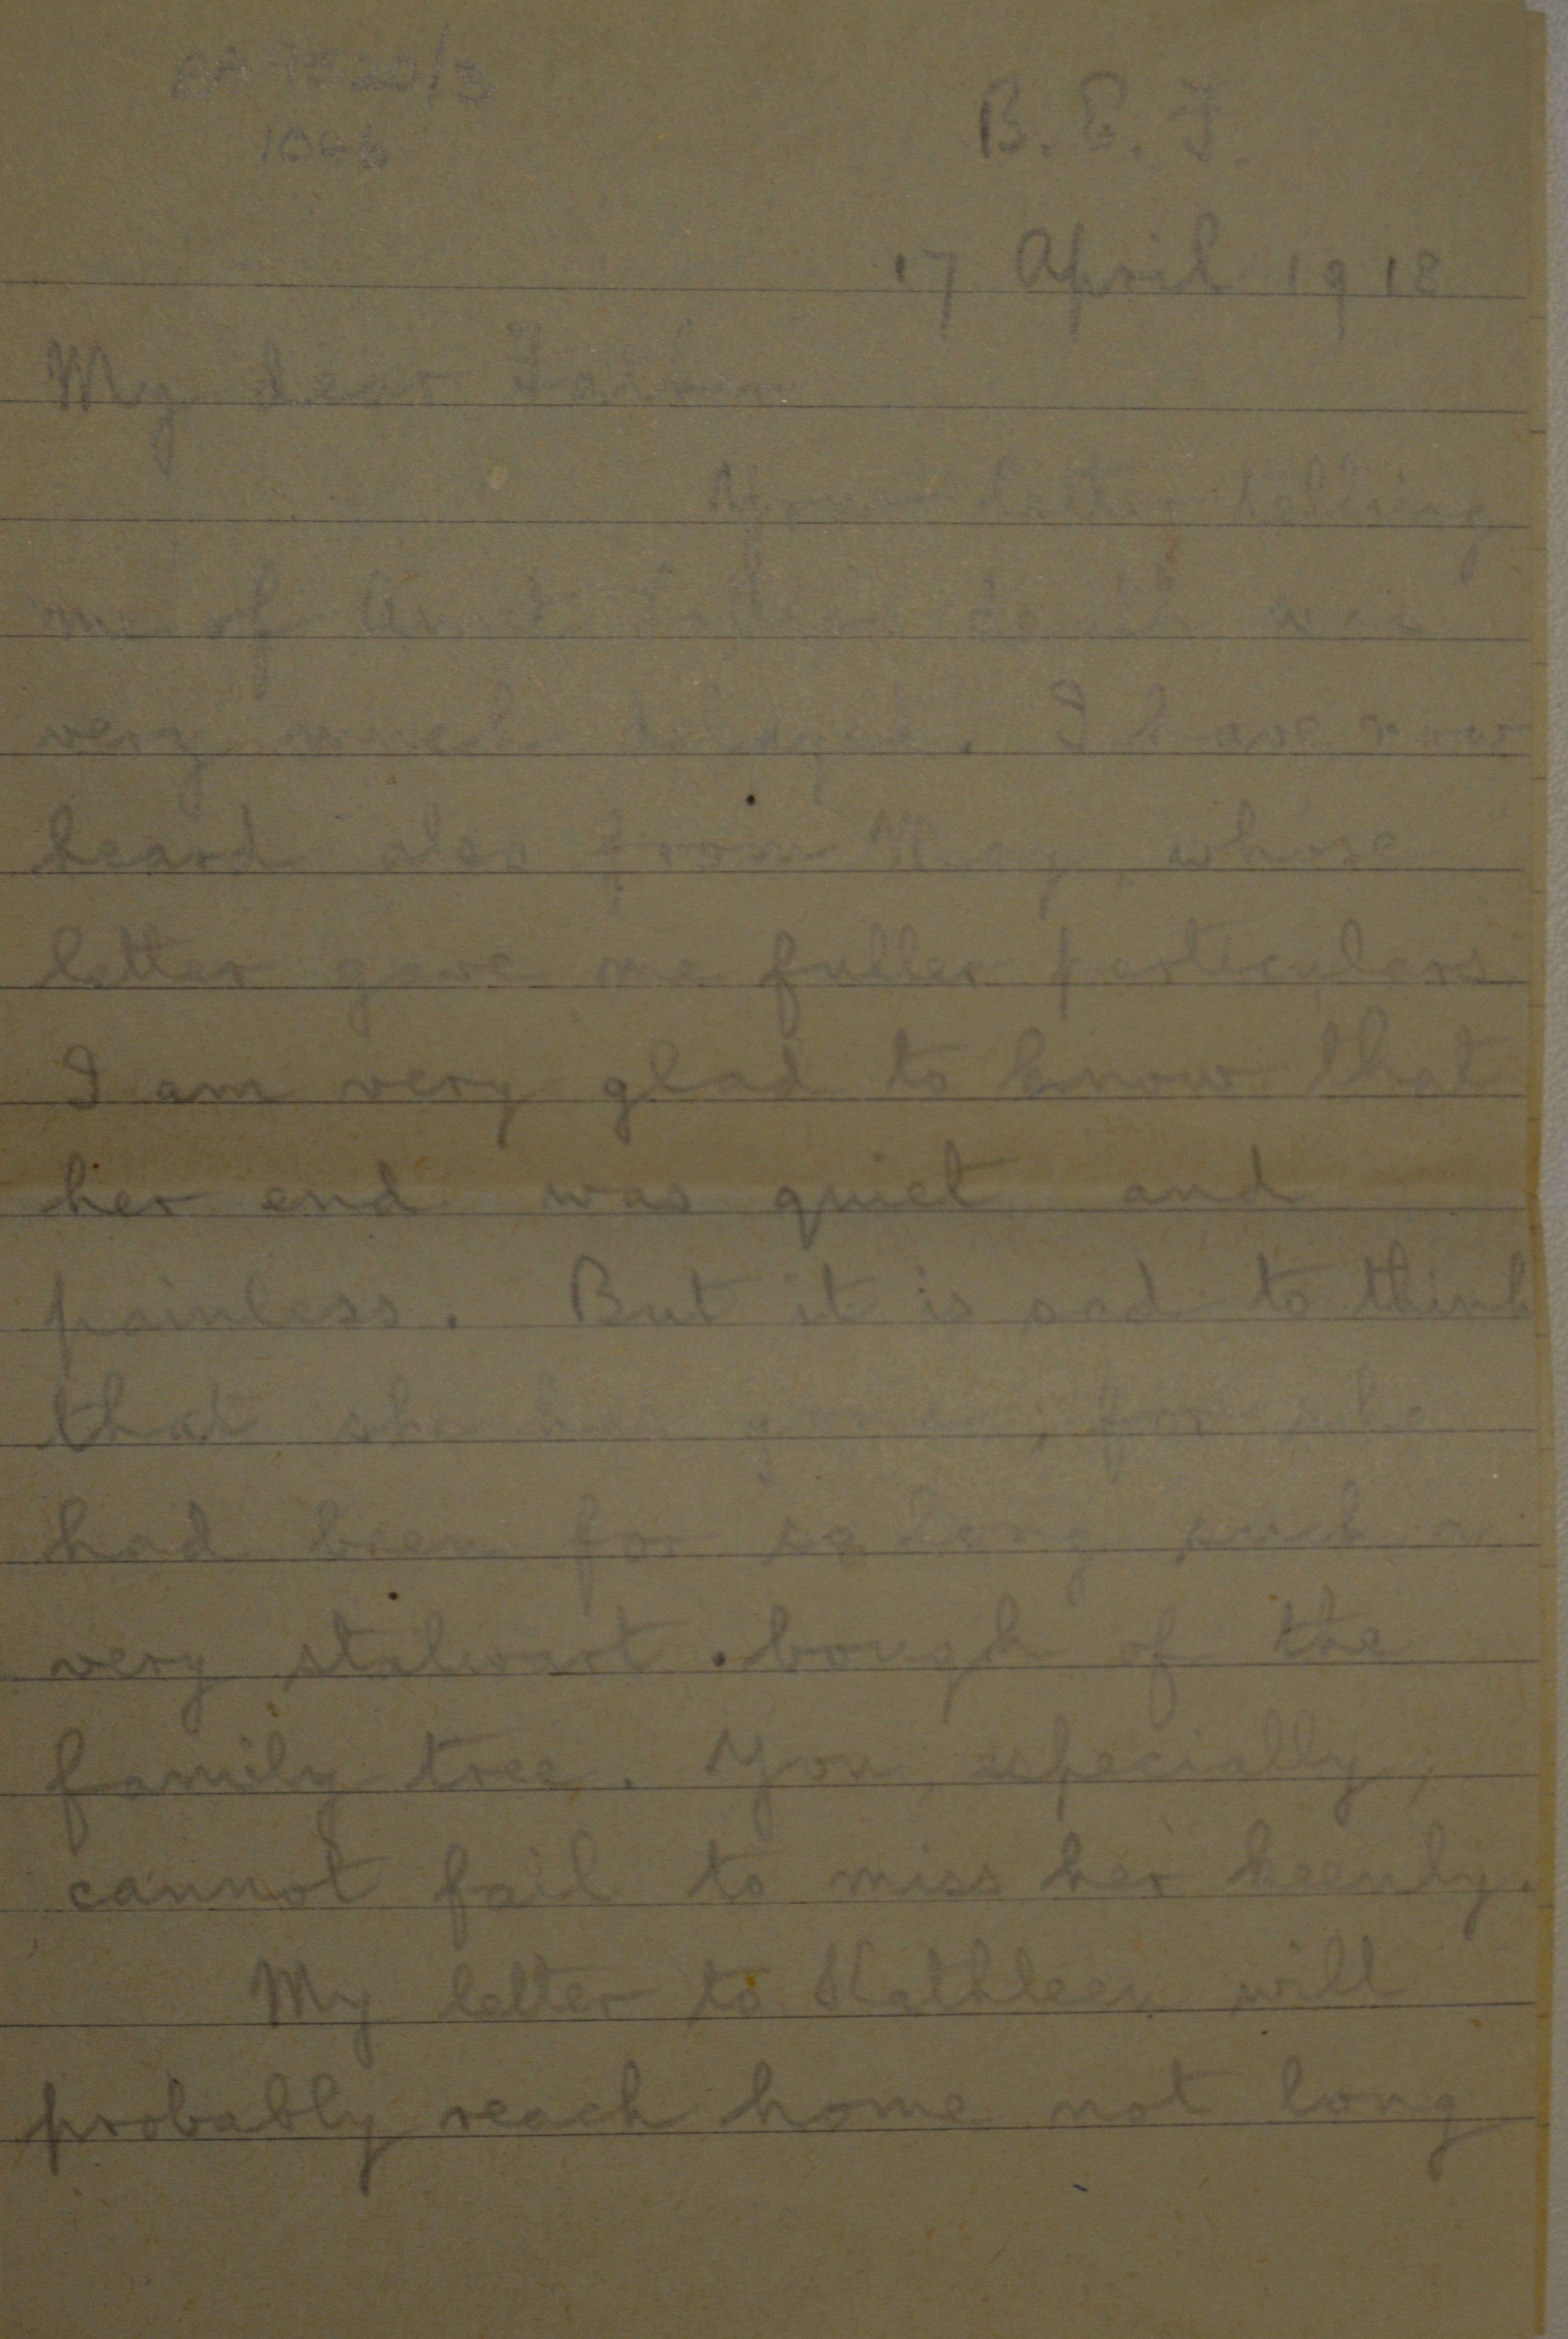 B. E. F.
17 April 1918
My dear Father
Your letter telling
me of Aunt death was
very much delayed. I have now
heard also from May, whose
letter gave me fuller particulars
I am very glad to know that
her end was quiet and
painless. But it is sad to think
that she has gone, for she
had been for so long such a
very stalwart bough of the
family tree. You, especially,
cannot fail to miss her keenly.
My letter to Kathleen will
probably reach home not long